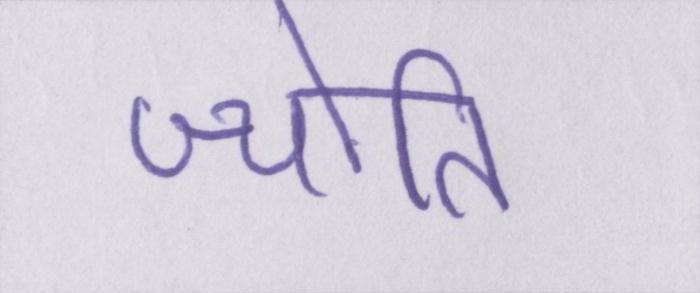 ज्योति